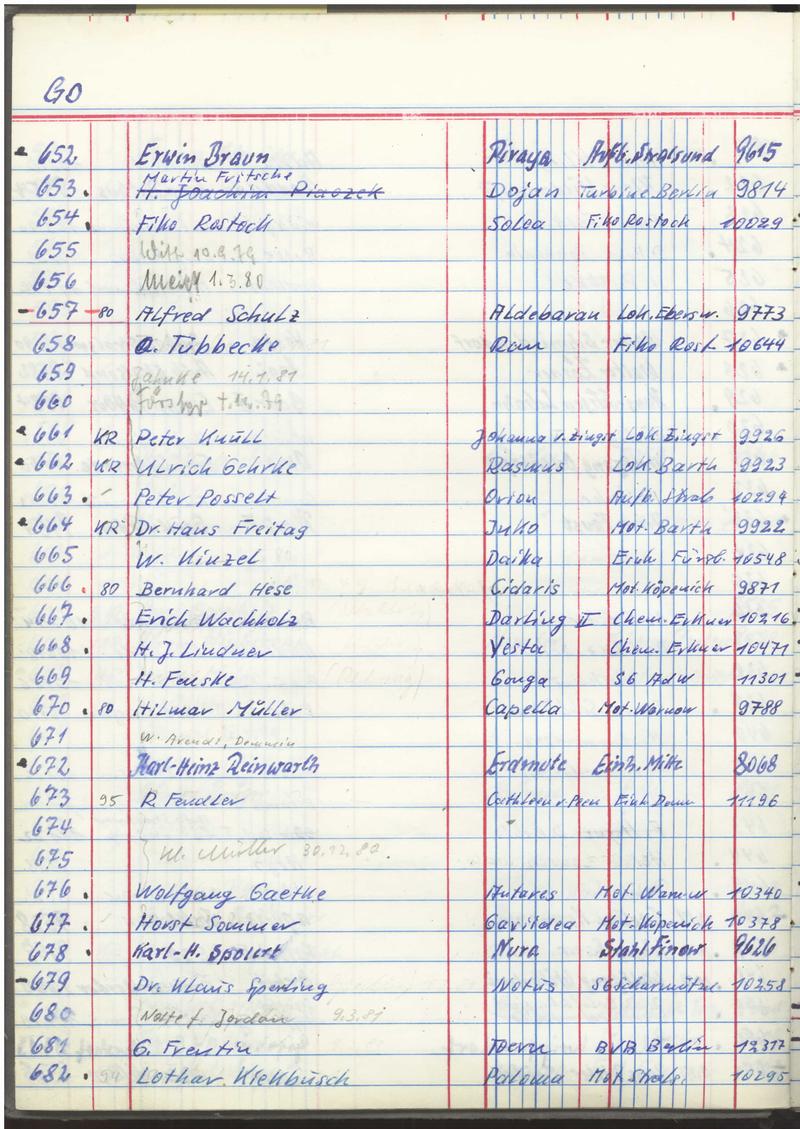 GO
652 Erwin Braun Piraya Aufb. Stralsund 9615
Martin Fritsche
653. H. Joachim Dojan Turbine Berlin 9814
654. Fiko Rostock Solea Fiko Rostock 10029
655 Witt 10.9.79
656 1.3.80
657 80 Alfred Schulz Aldebaran Lok. Ebersw. 9773
658 A. Tübbecke Ran Fiko Rost. 10644
659 Jahnke 14.1.81
660
661 KR Peter Knüll Johanna v. Zingst Lok Zingst 9926
662 KR Ulrich Gehrke Rasmus Lok. Barth 9923
663. Peter Posselt Orion Aufb. Stral 10294
664 KR Dr. Hans Freitag Juko Mot. Barth 9922
665 W. Kinzel Daika Einh. Fürstb. 10548
666. 80 Bernhard Hese Cidaris Mot. Köpenick 9871
667. Erich Wachholz Darling II Chem. Erkner 10216
668. H. J. Lindner Vesta Chem. Erkner 10471
669 H. Fenske Gonga SG AdW 11301
670. 80 Hilmar Müller Capella Mot. Warnow 9788
671 W. Arendt, Demmin
672 Karl-Heinz Reinwarth Erdmute Einh. Mitte 8068
673 95 R. Fendler Cathleen v. Peen Einh. Dem 11196
674
675 Müller 30.12.80.
676. Wolfgang Gaetke Antares Mot. Warnow 10340
677. Horst Sommer Gavildea Mot. Köpenick 10378
678. Karl-H. Nura Stahl Finow 9626
679 Dr. Klaus Sperling Notus SG Scharmützel 10258
680 Nolte f. Jordan 9.3.81
681 G. Frentin BVB Berlin 12317
682. 94 Lothar Kiekbusch Paloma Mot. Strals. 10295